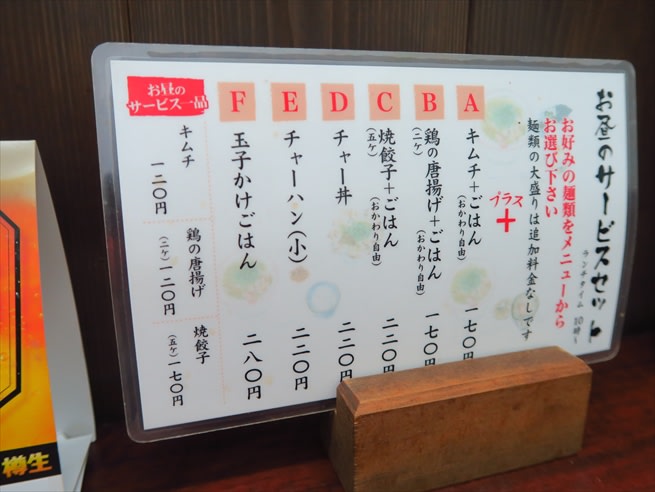 お昼のサービスセット
ランチタイム 10時〜
お好みの麺類をメニューから
お選び下さい
麺類の大盛りは追加料金なしです
プラス
+
A
キムチ+ごはん
(おかわり自由)
一七〇円
B
鶏の唐揚げ+ごはん
(二ケ)
(おかわり自由)
一七〇円
C
焼餃子+ごはん
(五ケ)
(おかわり自由)
二二〇円
D
チャー丼
二二〇円
E
チャーハン(小)
二二〇円
F
玉子かけごはん
二八〇円
お昼の
サービス一品
キムチ
一二〇円
鶏の唐揚げ
(二ケ)一二〇円
焼餃子
(五ケ)一七〇円
樽生